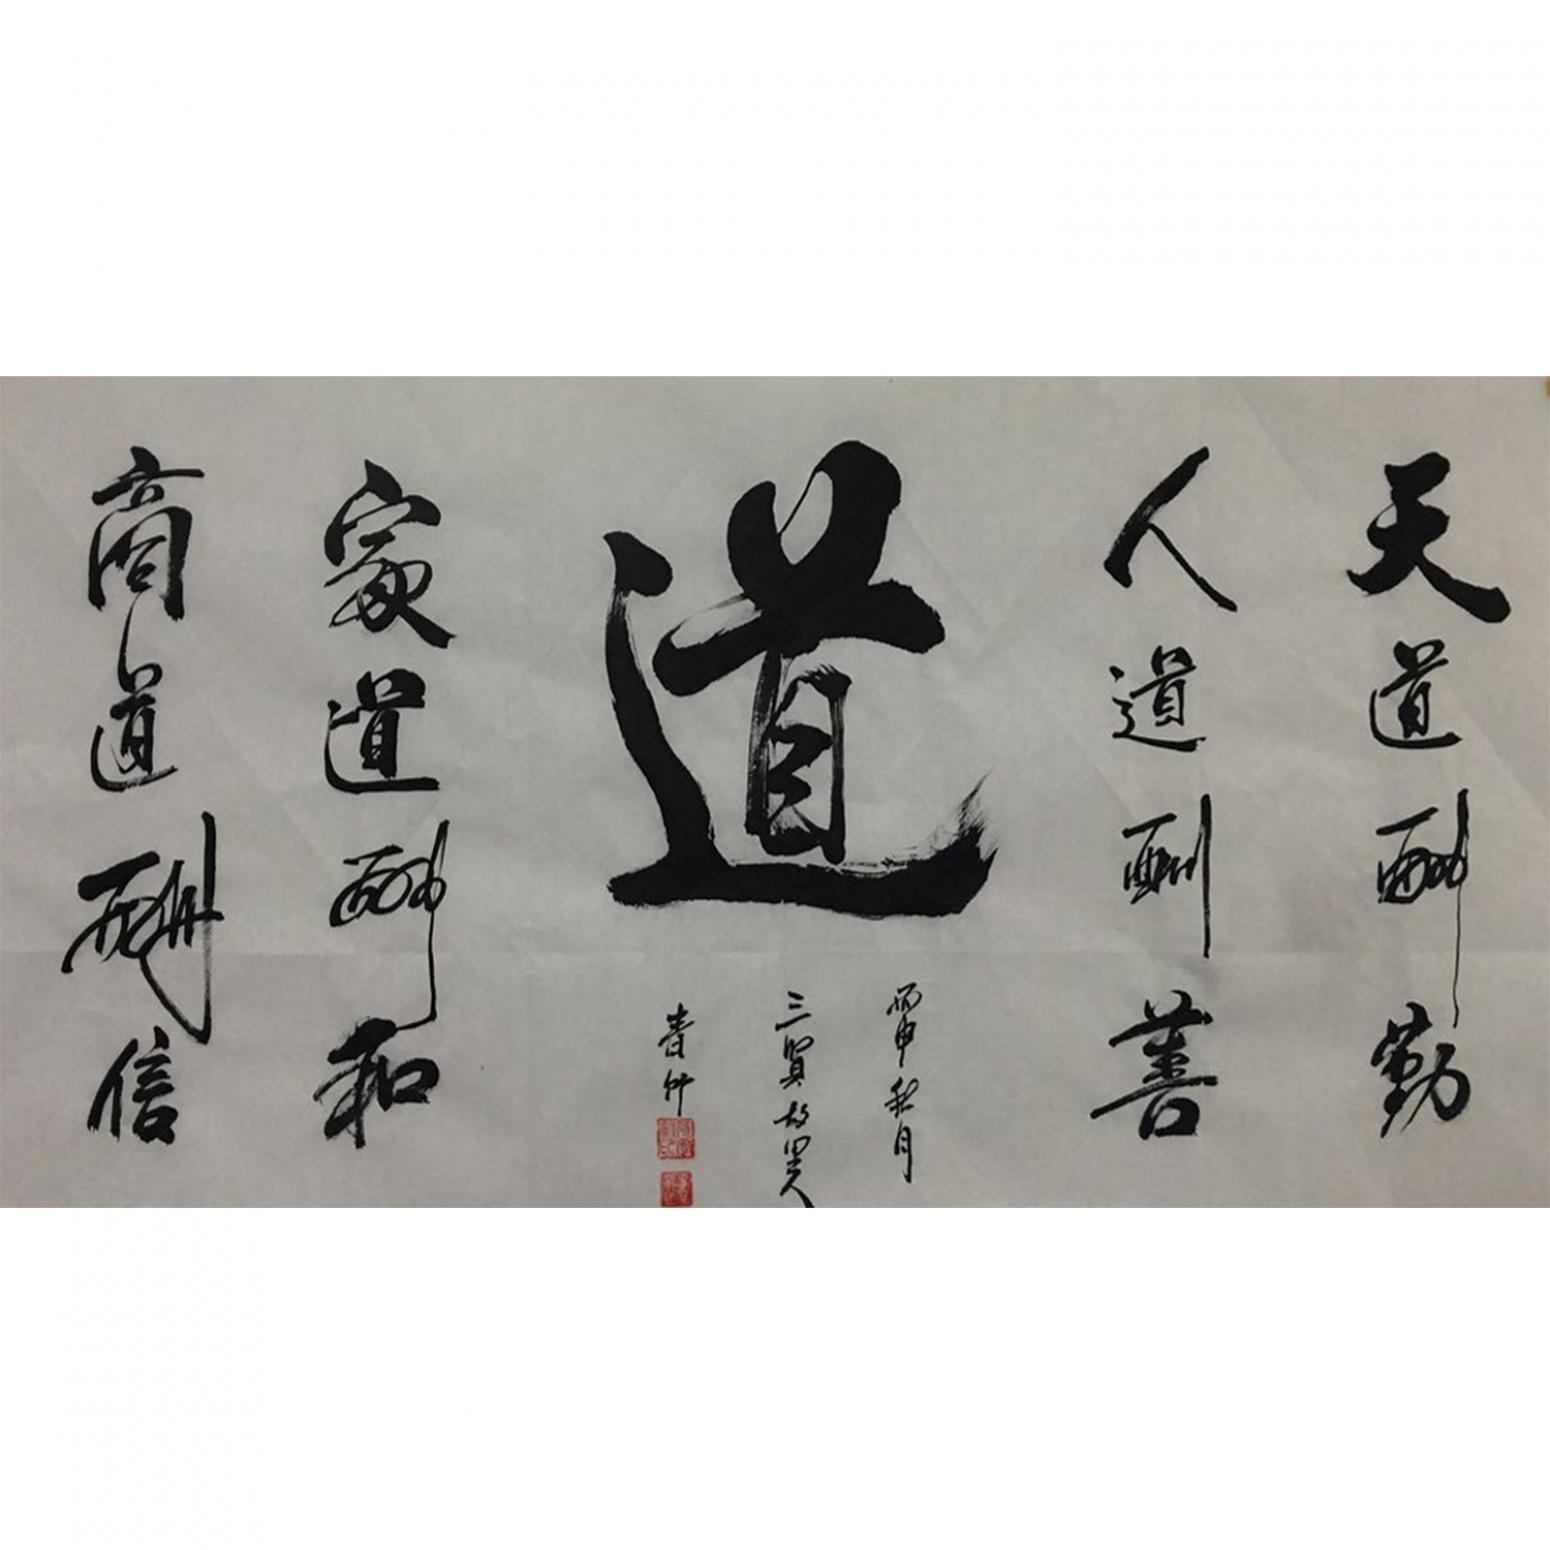 天道酬勤
人道酬善
道
丙申秋月
三贤故里人
青竹
家道酬和
商道酬信